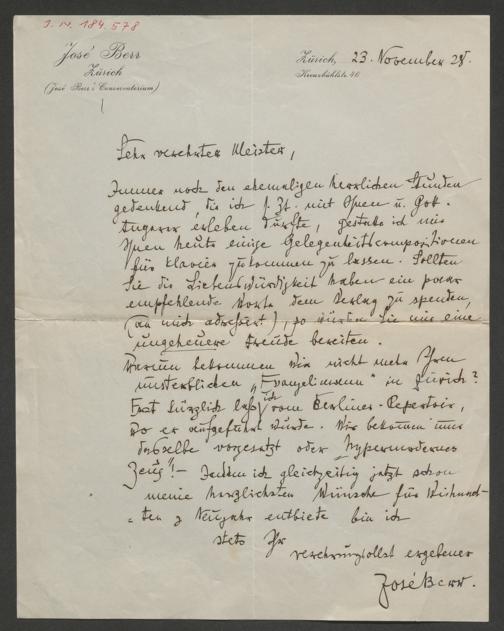 I. N. 184.578
José Berr
Zürich
(José Berr's Conservatorium)
Zürich, 23. November 28.
Kreuzbühlstr. 46
Sehr verehrter Meister,
Immer noch den ehemaligen herrlichen Stunden
gedenkend, die ich s. Zt. mit Ihnen u. Gok.
erleben durfte, gestatte ich mir
Ihnen heute einige Gelegenheitscompositionen
für Klavier zukommen zu lassen. Sollten
Sie die Liebenswürdigkeit haben ein paar
empfehlende Worte dem Verlag zu spenden,
(an mich adressiert), so würden Sie mir eine
ungeheuere Freude bereiten.
Warum bekommen wir nicht mehr Ihren
unsterblichen „Evangelimann" in Zürich?
Erst kürzlich las ich vom Berliner-Repertoir,
wo er aufgeführt wurde. Wir bekommen nur
dasselbe vorgesetzt oder hypermodernes
Zeug"! — Indem ich gleichzeitig jetzt schon
meine herzlichsten Wünsche für Weihnach-
ten & Neujahr entbiete bin ich
stets Ihr
verehrungsvollst ergebener
José Berr.